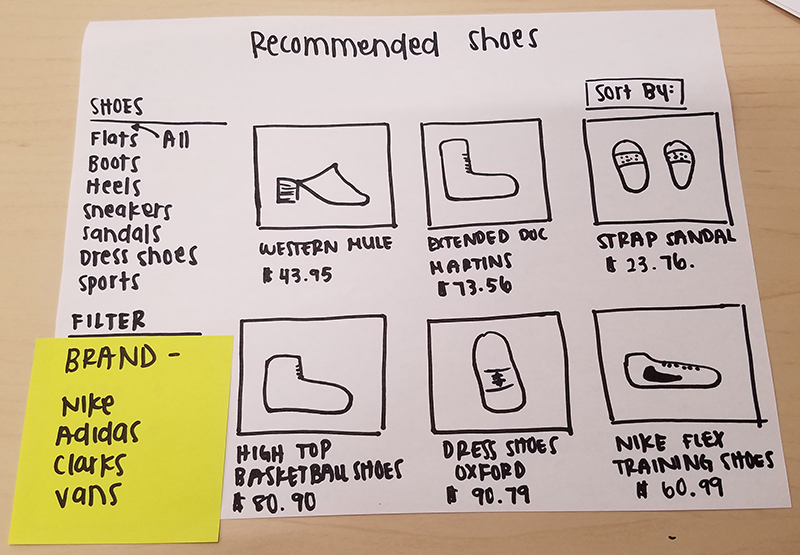 Recommended Shoes
Sort By:
SHOES
Flats All
Boots
Heels
Sneakers
Sandals
Dress shoes
Sports
FILTER
BRAND -
Nike
Adidas
Clarks
Vans
WESTERN MULE
$ 43.95
EXTENDED DOC
MARTINS
$73.56
STRAP SANDAL
$ 23.76.
HIGH TOP
BASKETBALL SHOES
$ 80.90
DRESS SHOES
OXFORD
$ 90.79
NIKE FLEX
TRAINING SHOES
$ 60.99